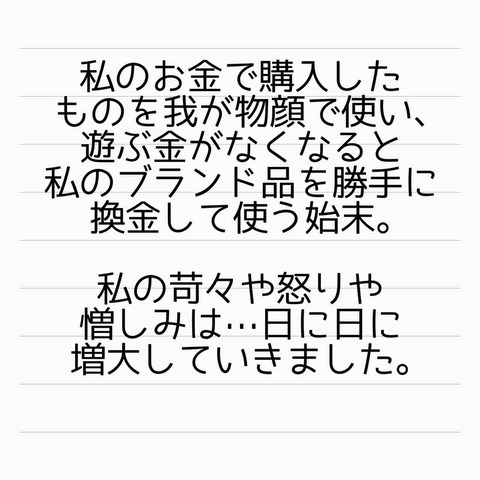 私のお金で購入した
ものを我が物顔で使い、
遊ぶ金がなくなると
私のブランド品を勝手に
換金して使う始末。
私の苛々や怒りや
憎しみは…日に日に
増大していきました。